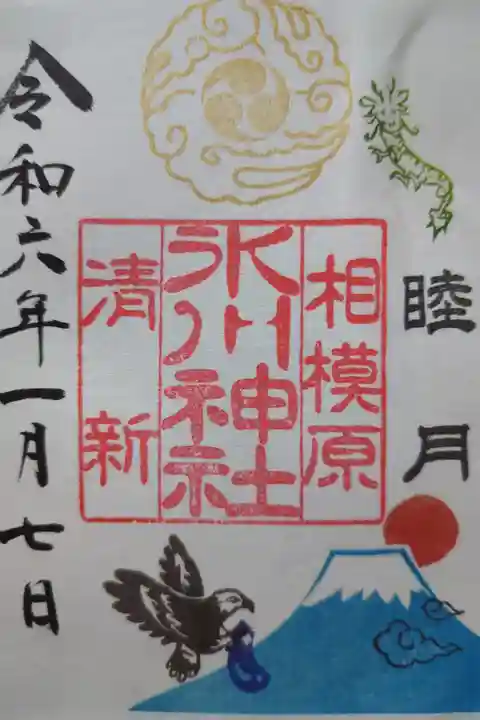 睦月
相模原
氷川神社
清新
令和六年一月七日